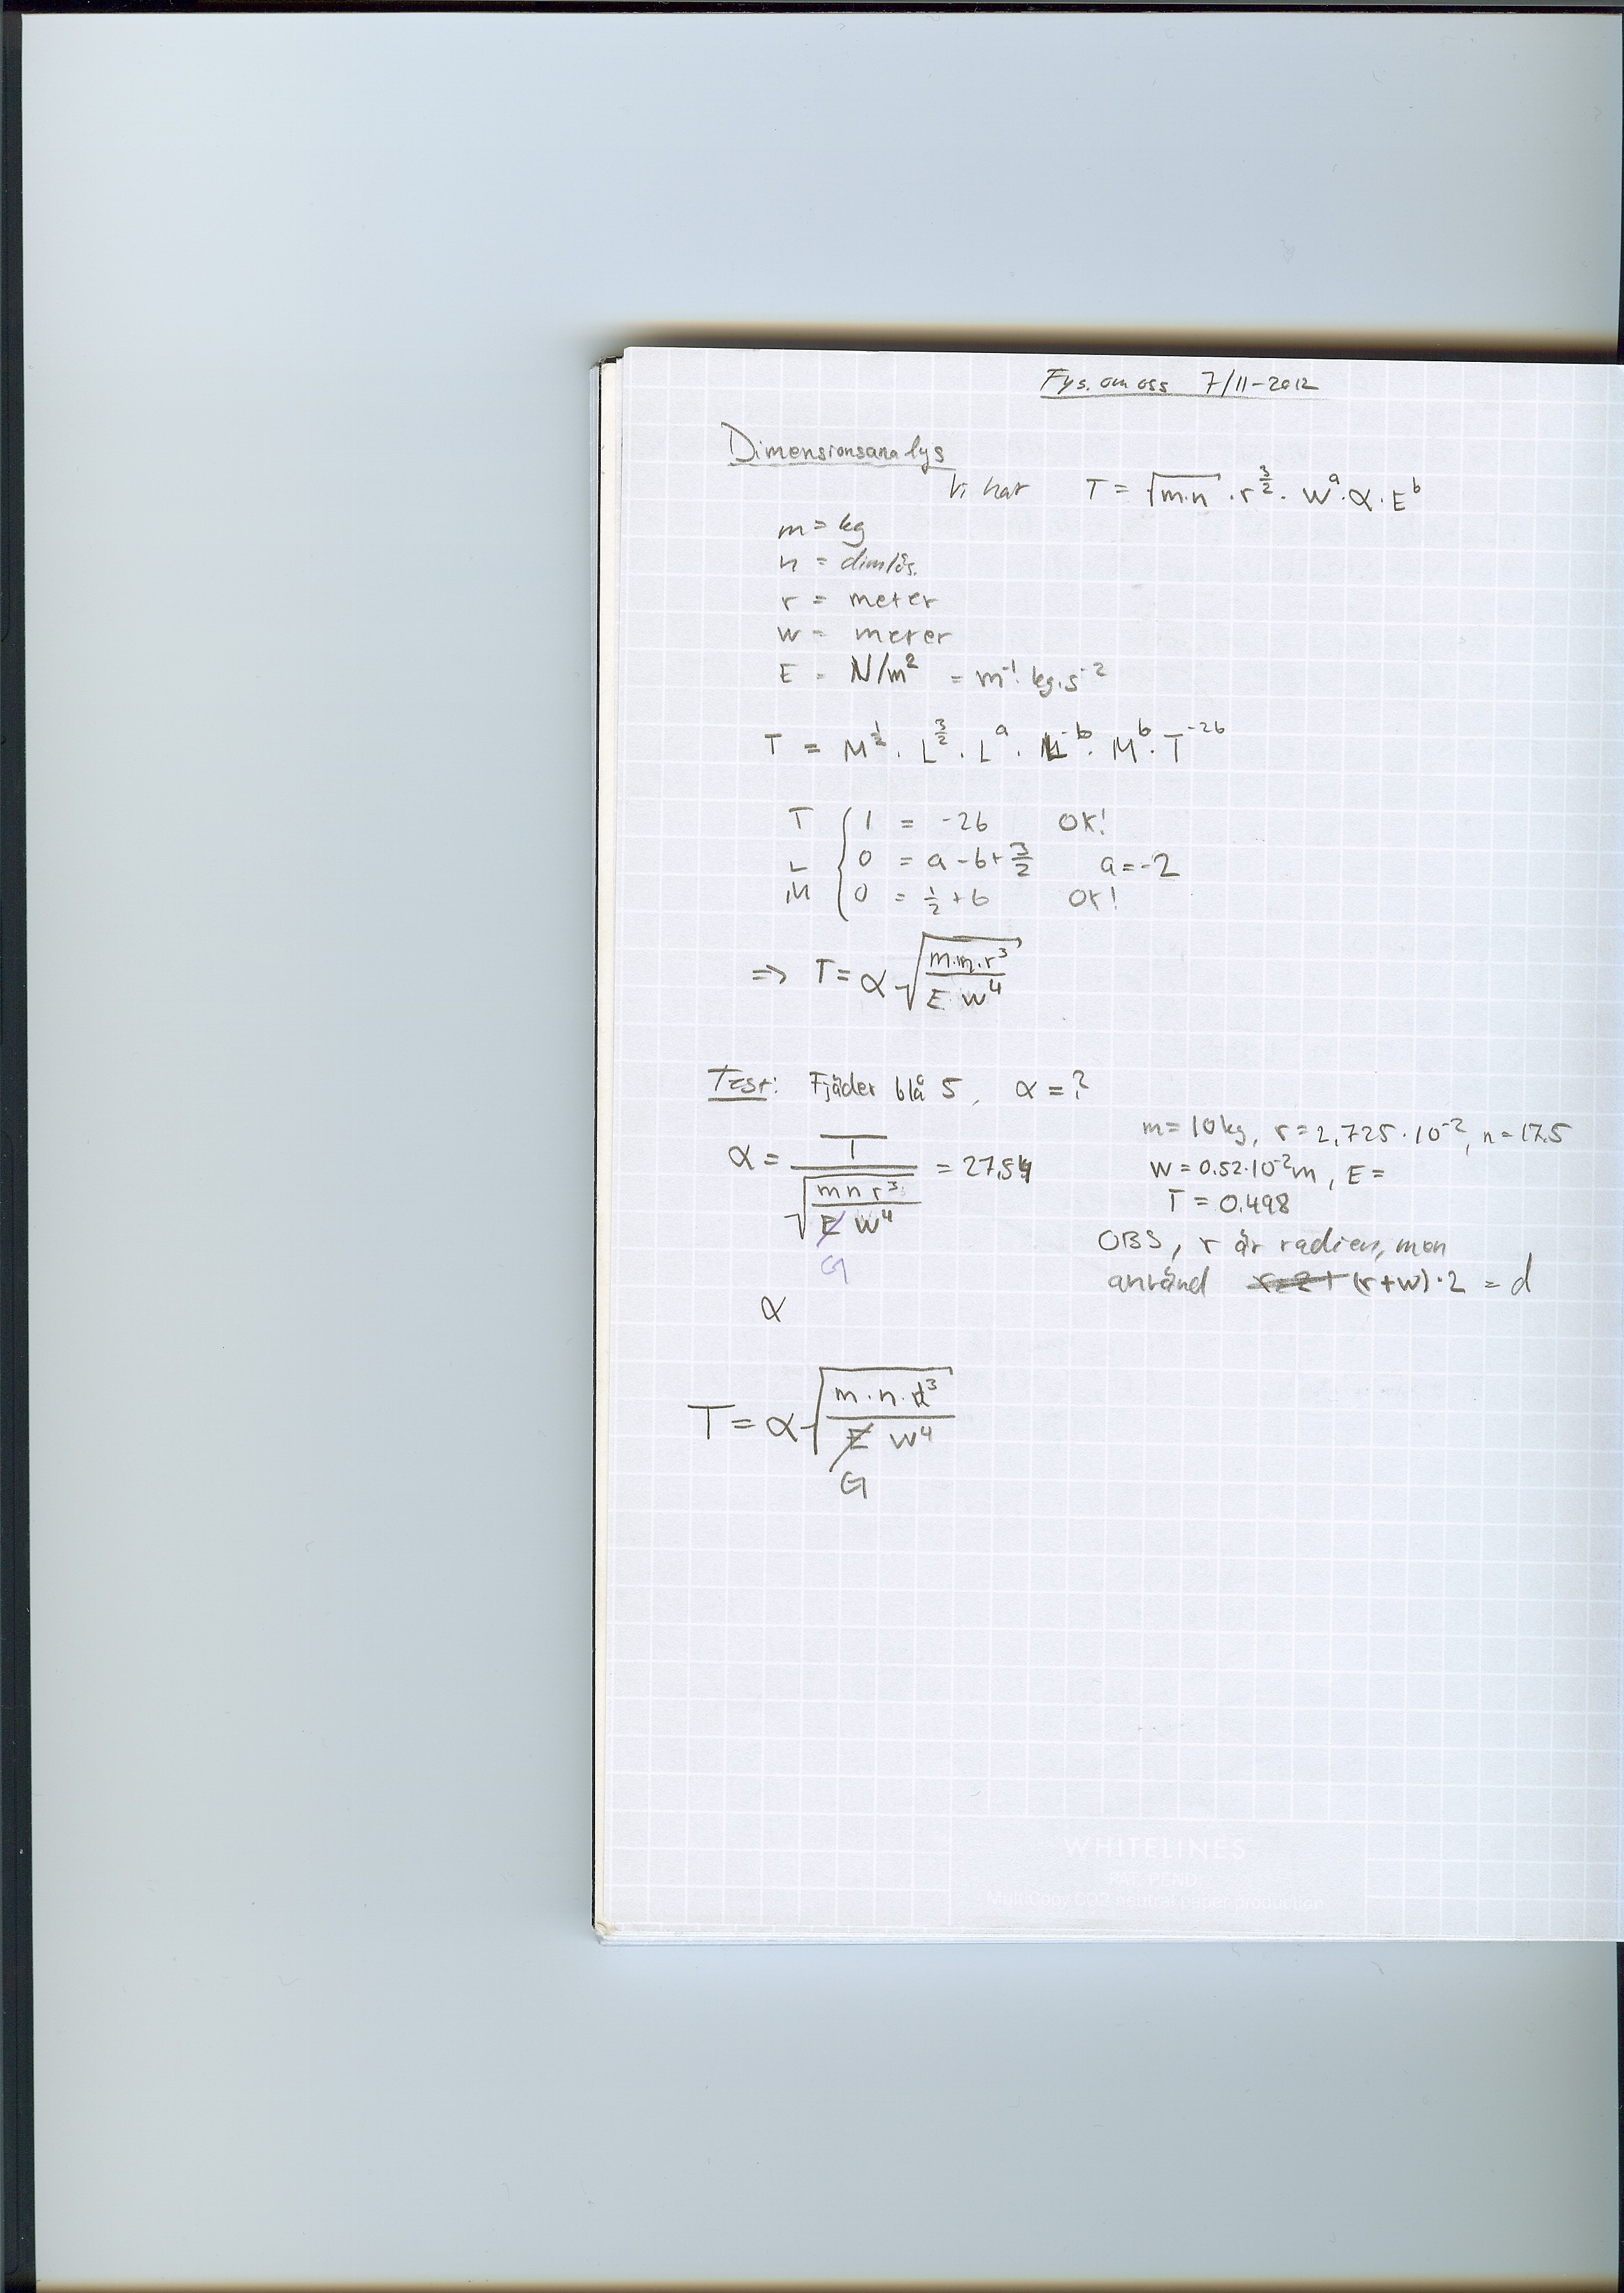 Fys. om oss 7/11-2012
Dimensionsanalys
Vi har T = √(m·n) · r^(3/2) · W^a · α · E^b
m = kg
n = dimlös.
r = meter
w = meter
E = N/m² = m⁻¹ · kg · s⁻²
T = M^(1/2) · L^(3/2) · L^a · L^-b · M^b · T^-2b
T { 1 = -2b OK!
L { 0 = a - b + 3/2 a = -2
M { 0 = 1/2 + b OK!
=> T = α √(m·n·r³ / E W⁴)
Test: Fjäder blå 5, α = ?
m = 10 kg, r = 2,725·10⁻², n = 17.5
α = T / √(m n r³ / E W⁴) = 27,54
G
W = 0.52·10⁻² m, E =
T = 0.498
OBS, r är radien, men
använd (r+w)·2 = d
α
T = α √(m·n·d³ / E W⁴)
G
WHITELINES
PAT. PEND
MultiCopy CO2 neutral paper production